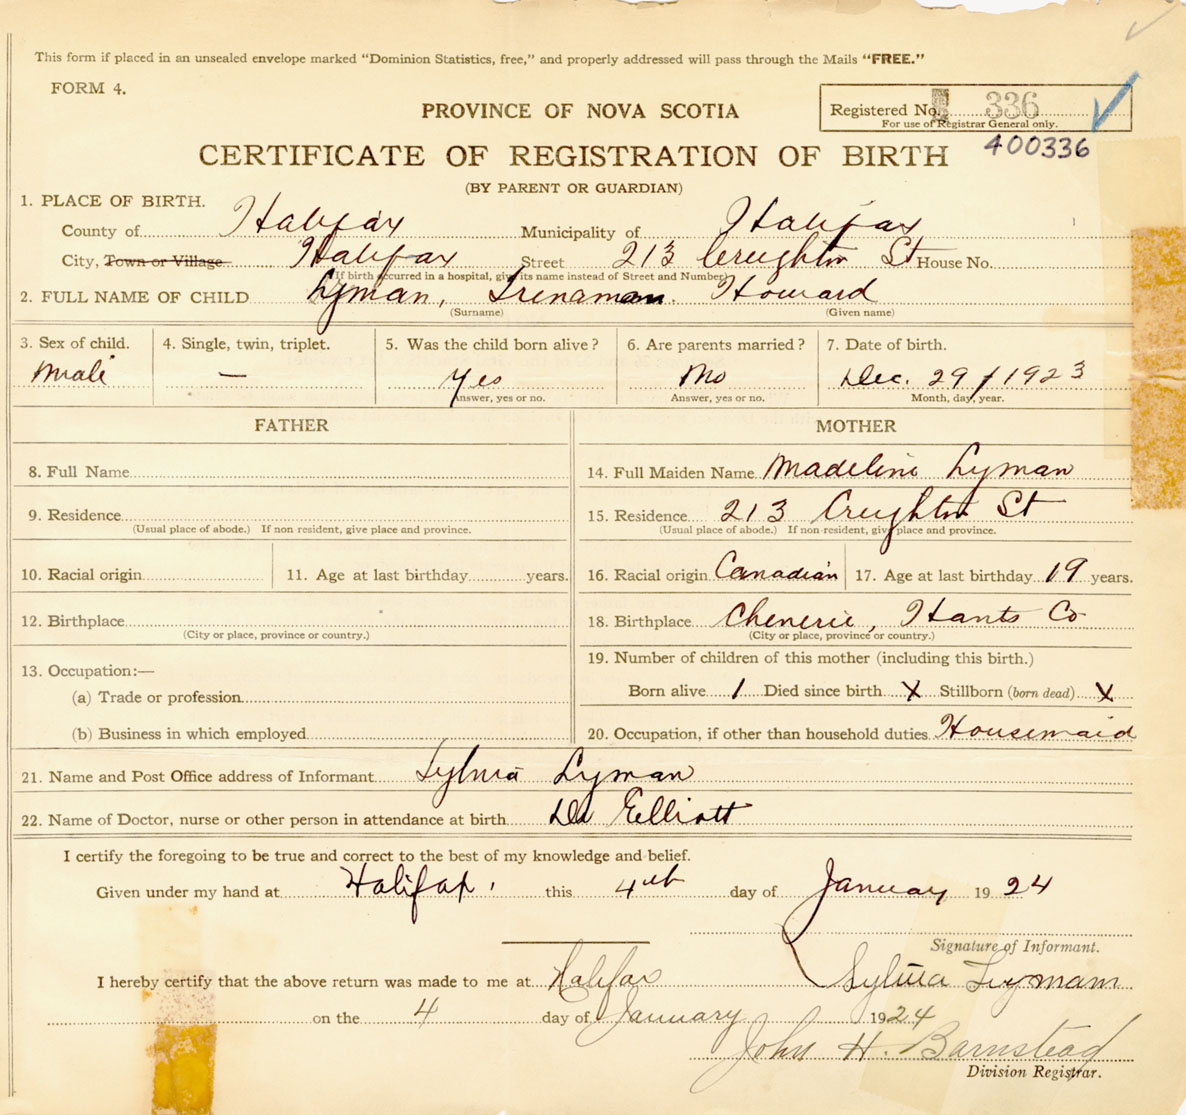 This form if placed in an unsealed envelope marked "Dominion Statistics, free," and properly addressed will pass through the Mails "FREE."
FORM 4.
PROVINCE OF NOVA SCOTIA
Registered No. 336
For use of Registrar General only.
400336
CERTIFICATE OF REGISTRATION OF BIRTH
(BY PARENT OR GUARDIAN)
1. PLACE OF BIRTH.
County of Halifax Municipality of Halifax
City, Town or Village Halifax Street 213 Creighton St House No.
(If birth occurred in a hospital, give its name instead of Street and Number)
2. FULL NAME OF CHILD Lyman, Howard
(Surname) (Given name)
3. Sex of child. 4. Single, twin, triplet. 5. Was the child born alive? 6. Are parents married? 7. Date of birth.
Male — Yes No Dec. 29/1923
Answer, yes or no. Answer, yes or no. Month, day, year.
FATHER MOTHER
8. Full Name 14. Full Maiden Name Madeline Lyman
9. Residence 15. Residence 213 Creighton St
(Usual place of abode.) If non resident, give place and province. (Usual place of abode.) If non-resident, give place and province.
10. Racial origin 11. Age at last birthday years. 16. Racial origin Canadian 17. Age at last birthday 19 years.
12. Birthplace 18. Birthplace Chenerie, Hants Co
(City or place, province or country.) (City or place, province or country.)
13. Occupation:— 19. Number of children of this mother (including this birth.)
(a) Trade or profession Born alive 1 Died since birth X Stillborn (born dead) X
(b) Business in which employed 20. Occupation, if other than household duties Housemaid
21. Name and Post Office address of Informant Sylvia Lyman
22. Name of Doctor, nurse or other person in attendance at birth Dr Elliott
I certify the foregoing to be true and correct to the best of my knowledge and belief.
Given under my hand at Halifax, this 4th day of January 1924
Signature of Informant.
I hereby certify that the above return was made to me at Halifax Sylvia Lymam
on the 4 day of January 1924
John H. Barnstead
Division Registrar.